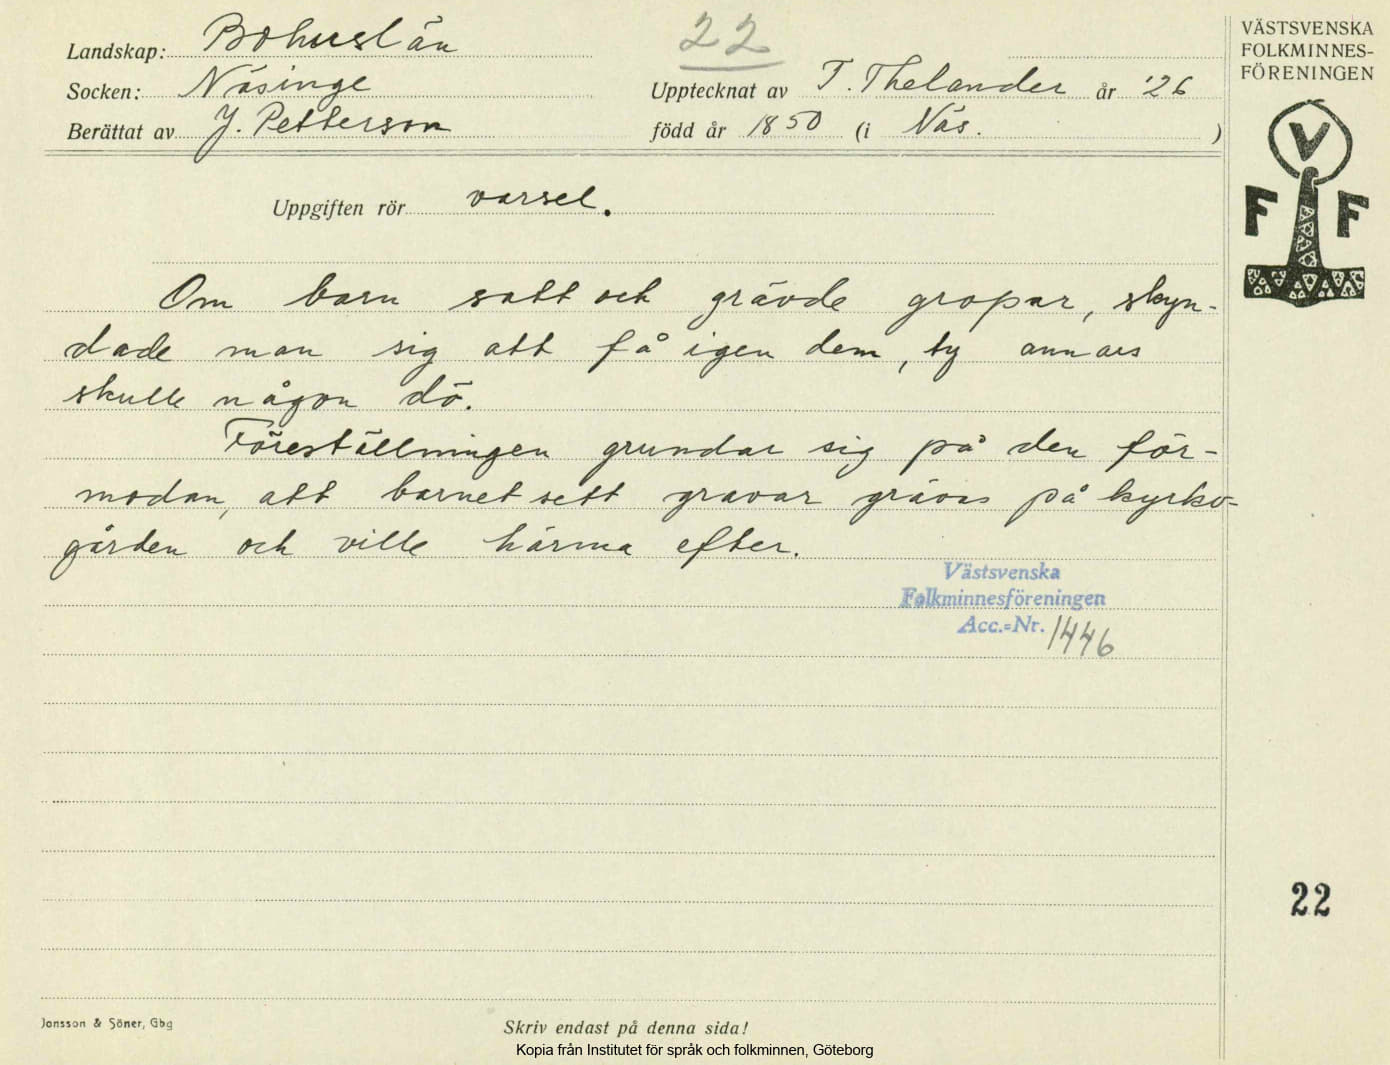 Landskap: Bohuslän
22
VÄSTSVENSKA
FOLKMINNES-
FÖRENINGEN
Socken: Näsinge
Upptecknat av T. Thelander år '26
Berättat av J. Petterson
född år 1850 (i Näs. )
V
F F
Uppgiften rör varsel.
Om barn satt och grävde gropar, skyn-
dade man sig att få igen dem, ty annars
skulle någon dö.
Föreställningen grundar sig på den för-
modan, att barnet sett gravar grävas på kyrko-
gården och ville härma efter.
Västsvenska
Folkminnesföreningen
Acc.=Nr. 1446
22
Jonsson & Söner, Gbg
Skriv endast på denna sida!
Kopia från Institutet för språk och folkminnen, Göteborg